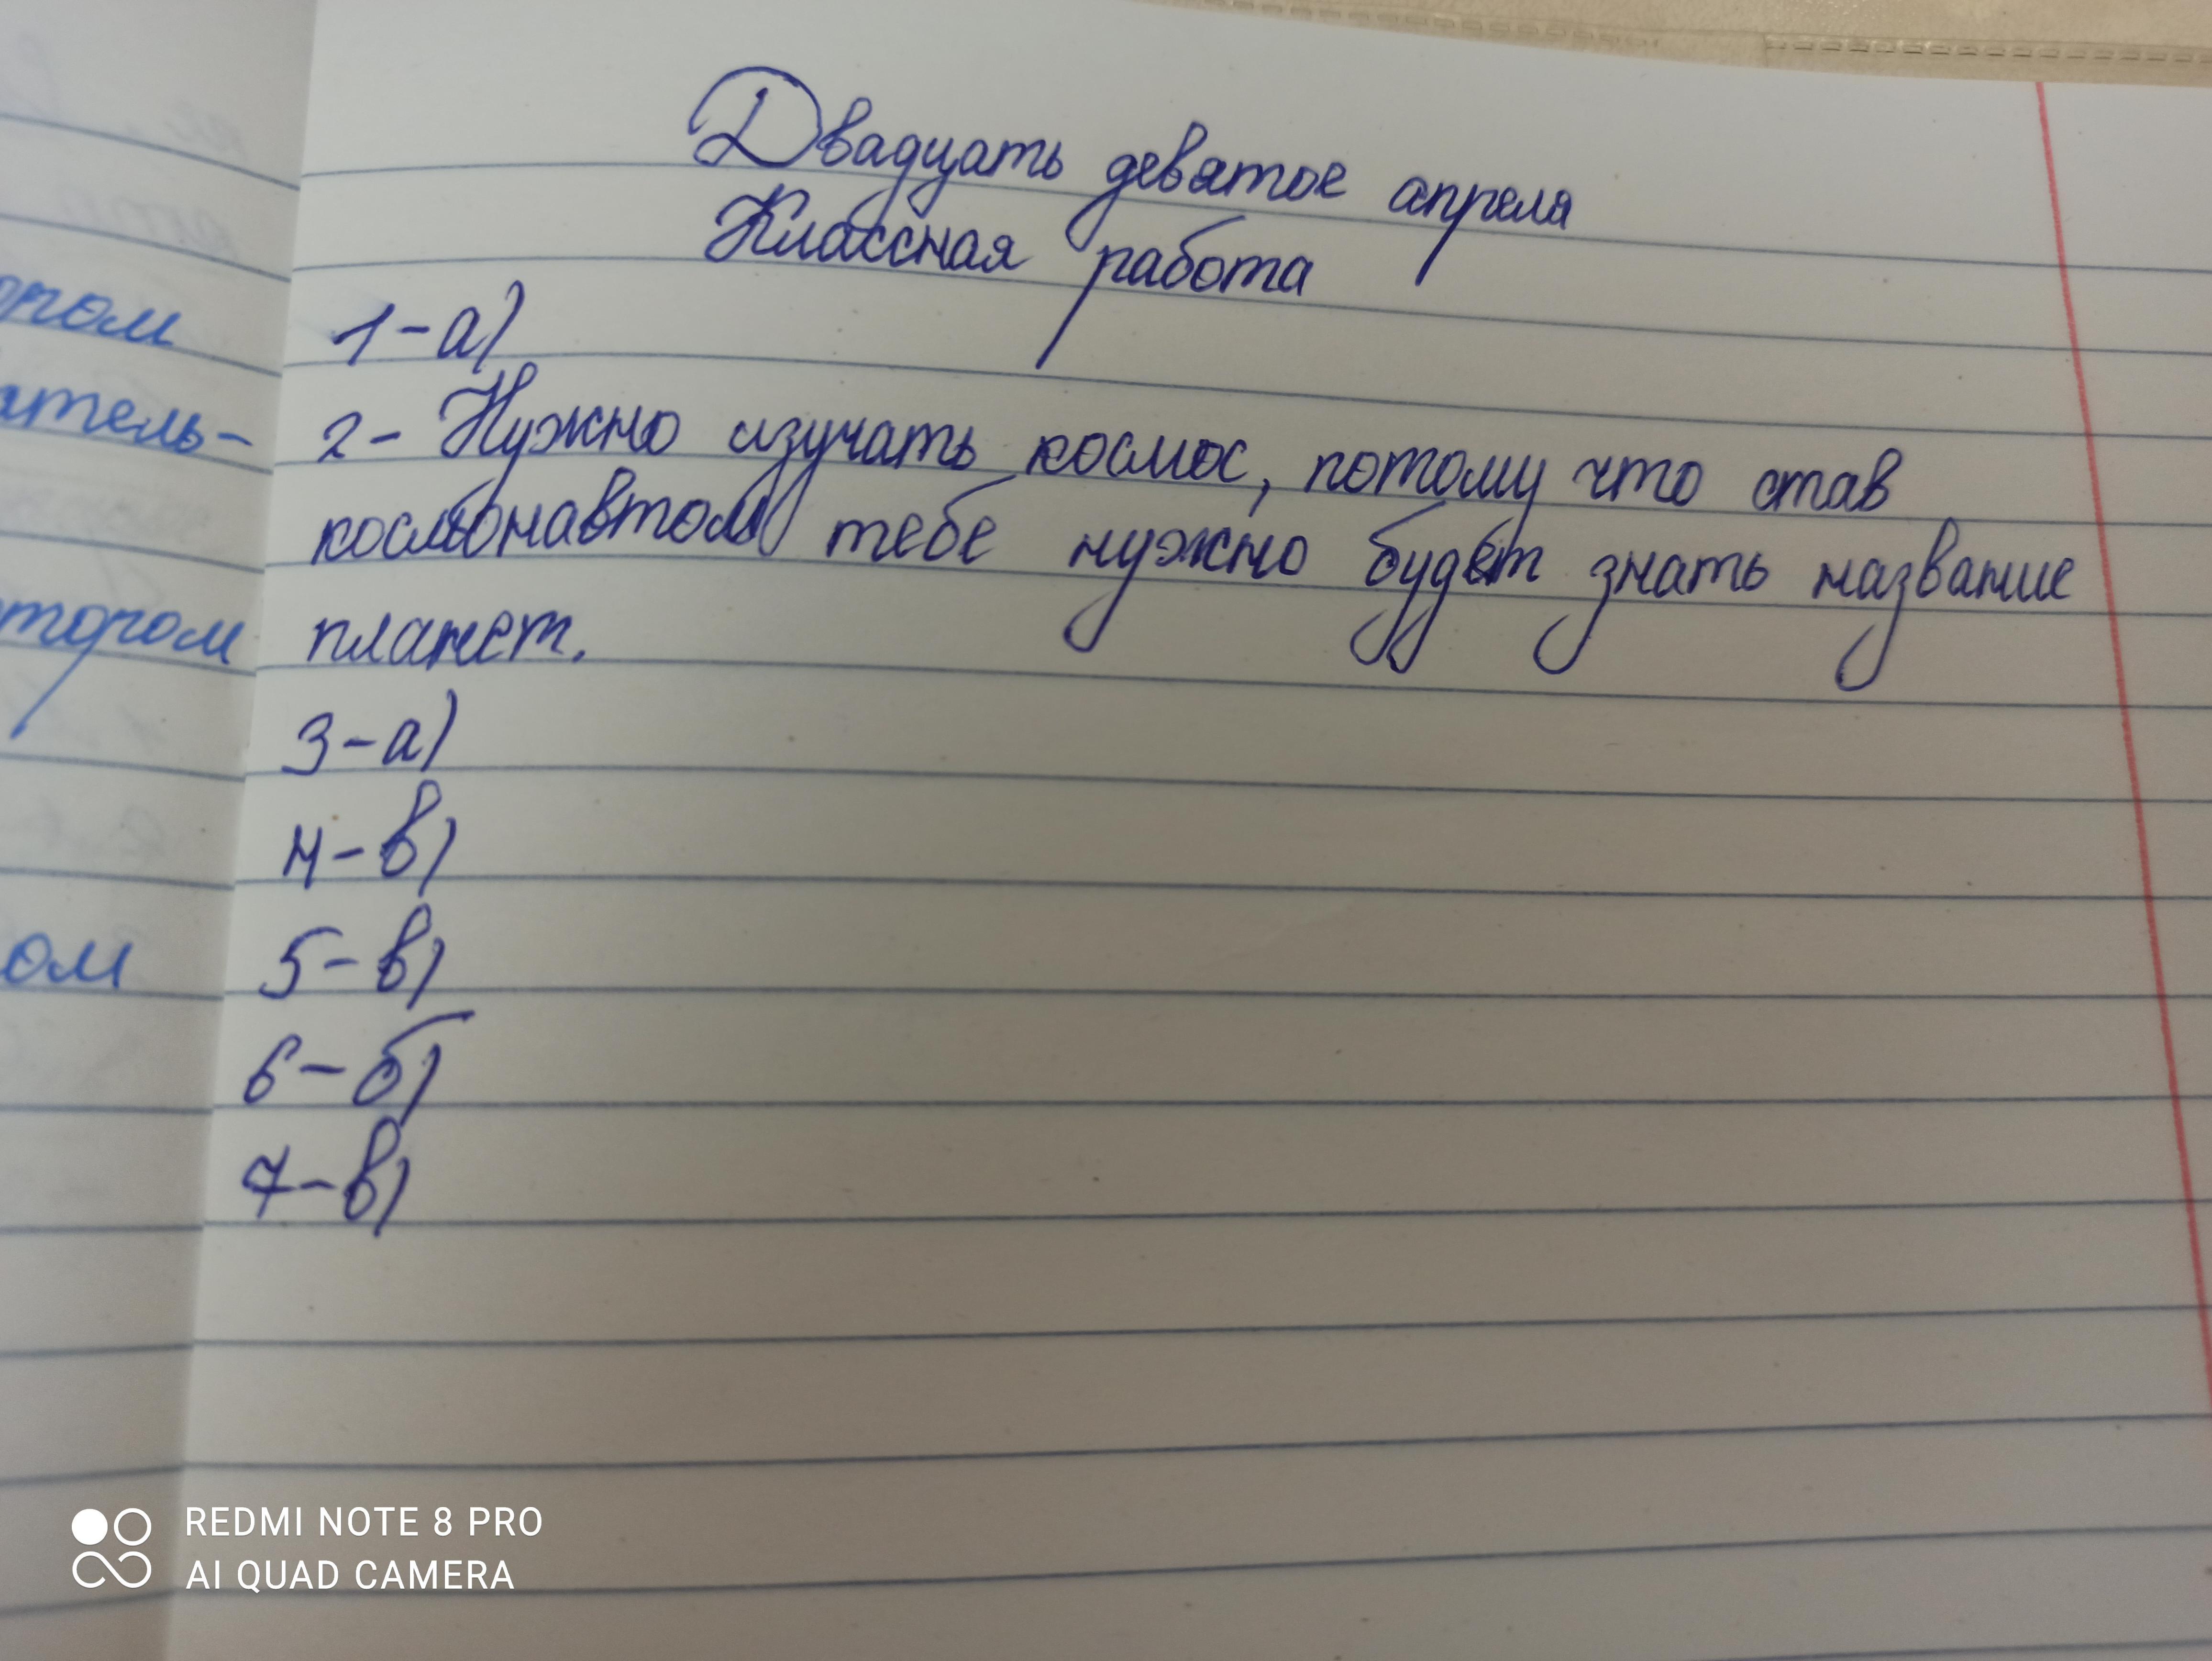 Двадцать девятое апреля
Классная работа
1-а)
2- Нужно изучать космос, потому что став
космонавтом тебе нужно будет знать название
планет.
3-а)
4-в)
5-в)
6-б)
7-в)
атель-
REDMI NOTE 8 PRO
AI QUAD CAMERA